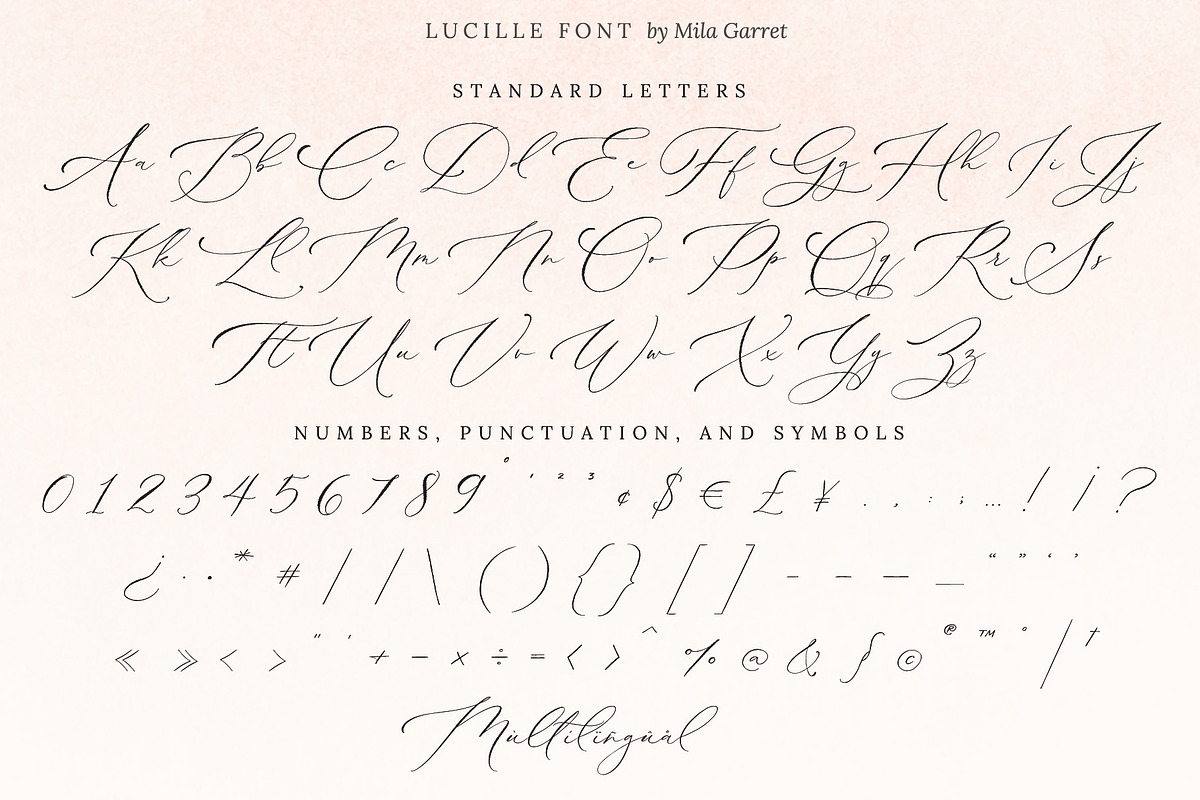 LUCILLE FONT by Mila Garret
STANDARD LETTERS
Aa Bb Cc Dd Ee Ff Gg Hh Ii Jj
Kk Ll Mm Nn Oo Pp Qq Rr Ss
Tt Uu Vv Ww Xx Yy Zz
NUMBERS, PUNCTUATION, AND SYMBOLS
0 1 2 3 4 5 6 7 8 9 ⁰ ¹ ² ³ ¢ $ € £ ¥ . , : ; … ! ¡ ?
¿ · • * # / / \ ( ) { } [ ] - – — _ “ ” ‘ ’
« » ‹ › " ' + − × ÷ = < > ^ % @ & ∫ © ® ™ ° | †
Mùltilïñgûål